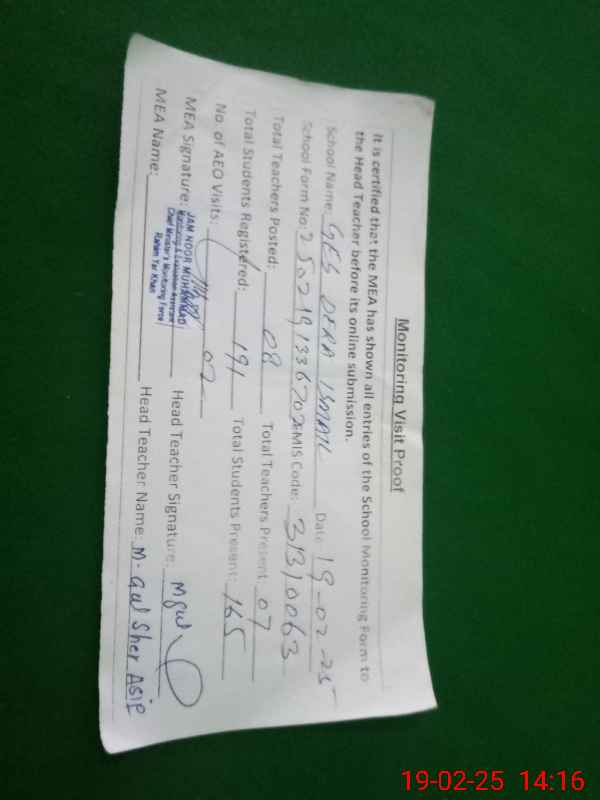 Monitoring Visit Proof
It is certified that the MEA has shown all entries of the School Monitoring Form to
the Head Teacher before its online submission.
School Name: GES DERA ISMAIL Date 19-02-25
School Form No: 250219133670 EMIS Code: 31310063
Total Teachers Posted: 08 Total Teachers Present: 07
Total Students Registered: 191 Total Students Present: 165
No. of AEO Visits: 02
MEA Signature: Head Teacher Signature: Mgul
JAM NOOR MUHAMMAD
Monitoring & Evaluation Assistant
Chief Minister's Monitoring Force
Rahim Yar Khan
MEA Name: Head Teacher Name: M. Gul Sher ASIF
19-02-25 14:16